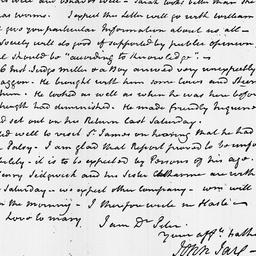 well and Unkaow well - Sarah looks better than she
was worse. I expect the Letter will go with William
give you particular Information about us all -
Society will do good if supported by public opinion
It should be "according to Knowledge" -
Chief Judge Miller & a Boy arrived very unexpectedly
Waggon - He brought with him some Cows and Steers
him - He looks as well as when he was here before
strength had diminished. He made friendly Inquiries
and set out on his Return last Saturday.
ed well to visit St. James on hearing that he had
Palsy - I am glad that Report proved to be unfo
ly - it is to be expected by Persons of his age.
Henry Sedgwick and his Sister Catharine are with
Saturday - we expect other Company - Wm. will
in the Morning - I therefore write in Haste -
Love to Mary. I am Dr. Peter.
Your affte. Father
John Jay -